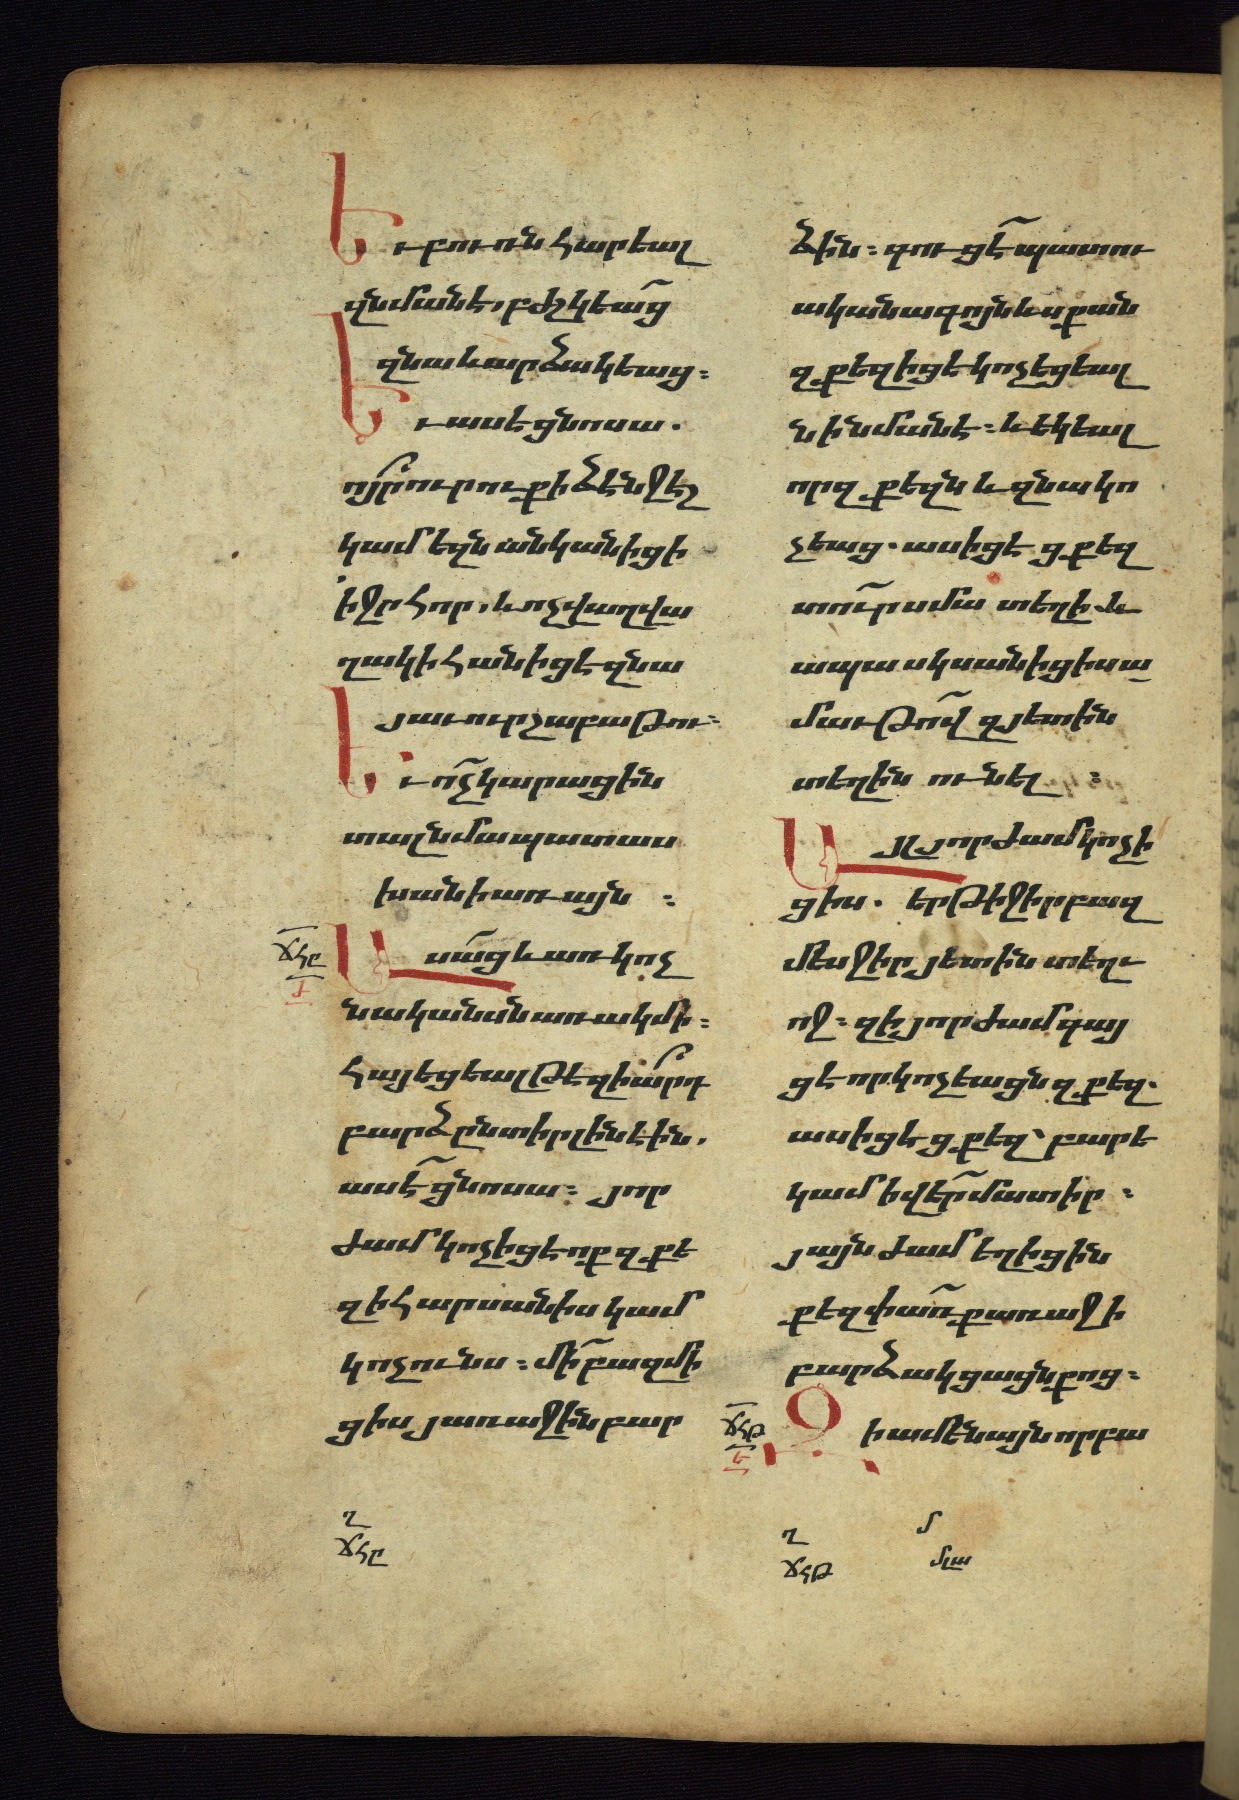 Եւ բուռն հարեալ
զնմանէ, բժշկեաց
զնա և արձակեաց։
Եւ ասէ ցնոսա.
ո՞յր ուրուք ի ձէնջ էշ
կամ եզն անկանիցի
ի ջրհոր, և ոչ վաղվա
ղակի հանիցէ զնա
յաւուր շաբաթու։
Եւ ո՞չ կարացին
տալ նմա պատաս
խանի առ այն ։
ճհը
ժ
Ասաց և առ կոչ
նականսն առակ մի։
հայեցեալ թէ զիարդ
բարձընտիր լինէին,
ասէ ցնոսա։ յոր
ժամ կոչիցէ ոք զքե
զ ի հարսանիս կամ
կոչունս։ մի բազմի
ցիս յառաջին բար
ղ
ճհը
ձին։ գուցէ պատու
ականագոյն ևս քան
զքեզ իցէ կոչեցեալ
ն ի նմանէ։ և եկեալ
որ զքեզն և զնա կո
չեաց. ասիցէ ցքեզ
տուր սմա տեղի. և
ապա սկսանիցիս ա
մաւթով զյետին
տեղին ունել ։
Այլ յորժամ կոչի
ցիս. երթիջիր բազ
մեսջիր յետին տեղւ
ոջ։ զի յորժամ գայ
ցէ որ կոչեացն զքեզ.
ասիցէ ցքեզ՝ բարե
կամ ի վեր մատիր ։
յայնժամ եղիցին
քեզ փառք առաջի
բարձակցացն քոց։
ճհթ
ե
Զի ամենայն որ բա
ղ
ճհթ
մ
մլա